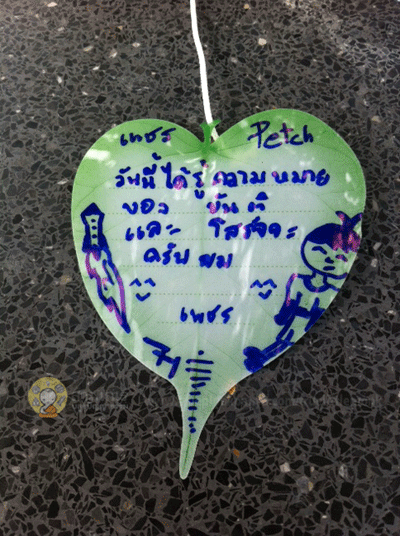 เพชร Petch
วันนี้ได้รู้ความหมาย
ของ ขันติ
และ โสรัจจะ
ครับ ผม
^^ ^^
เพชร